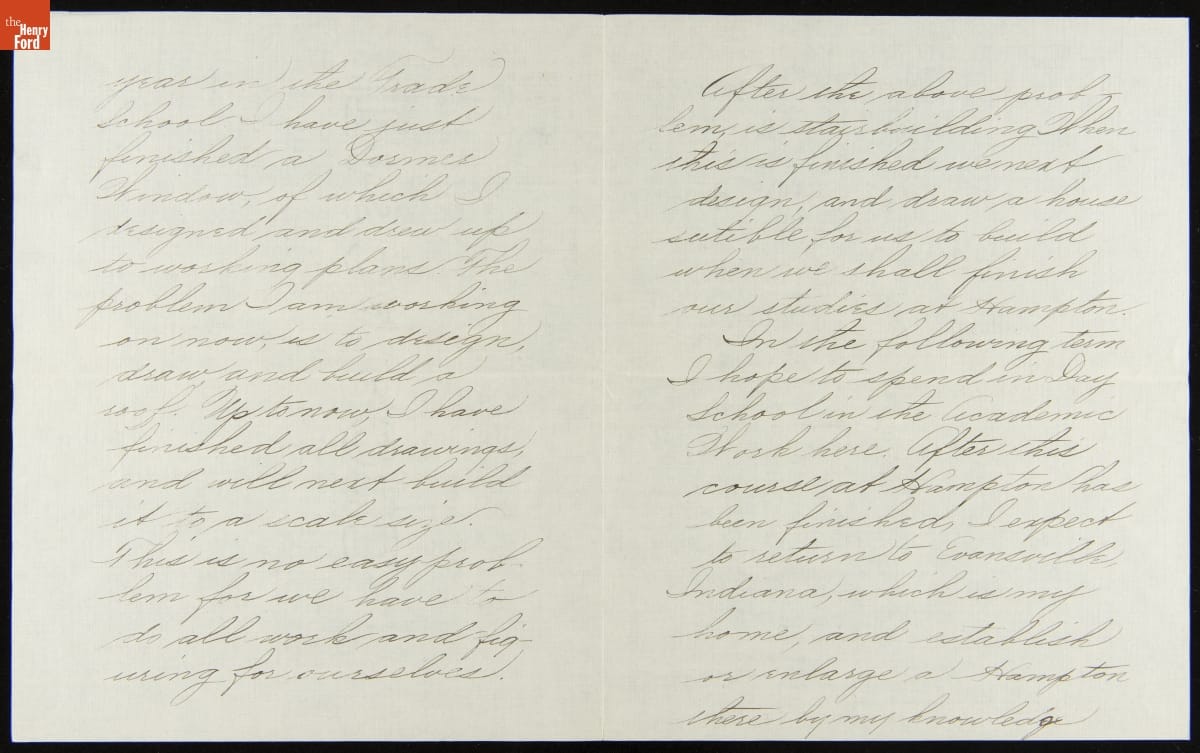 the
Henry
Ford
year in the Trade
School I have just
finished a Dormer
Window, of which I
designed and drew up
to working plans. The
problem I am working
on now, is to design,
draw and build a
roof. Up to now, I have
finished all drawings,
and will next build
it to a scale size.
This is no easy prob-
lem for we have to
do all work and fig-
uring for ourselves.
After the above prob-
lem, is stairbuilding When
this is finished we next
design, and draw a house
sutible for us to build
when we shall finish
our studies at Hampton.
In the following term
I hope to spend in Day
School in the Academic
Work here. After this
course at Hampton has
been finished, I expect
to return to Evansville,
Indiana, which is my
home, and establish
or enlarge a Hampton
there by my knowledge